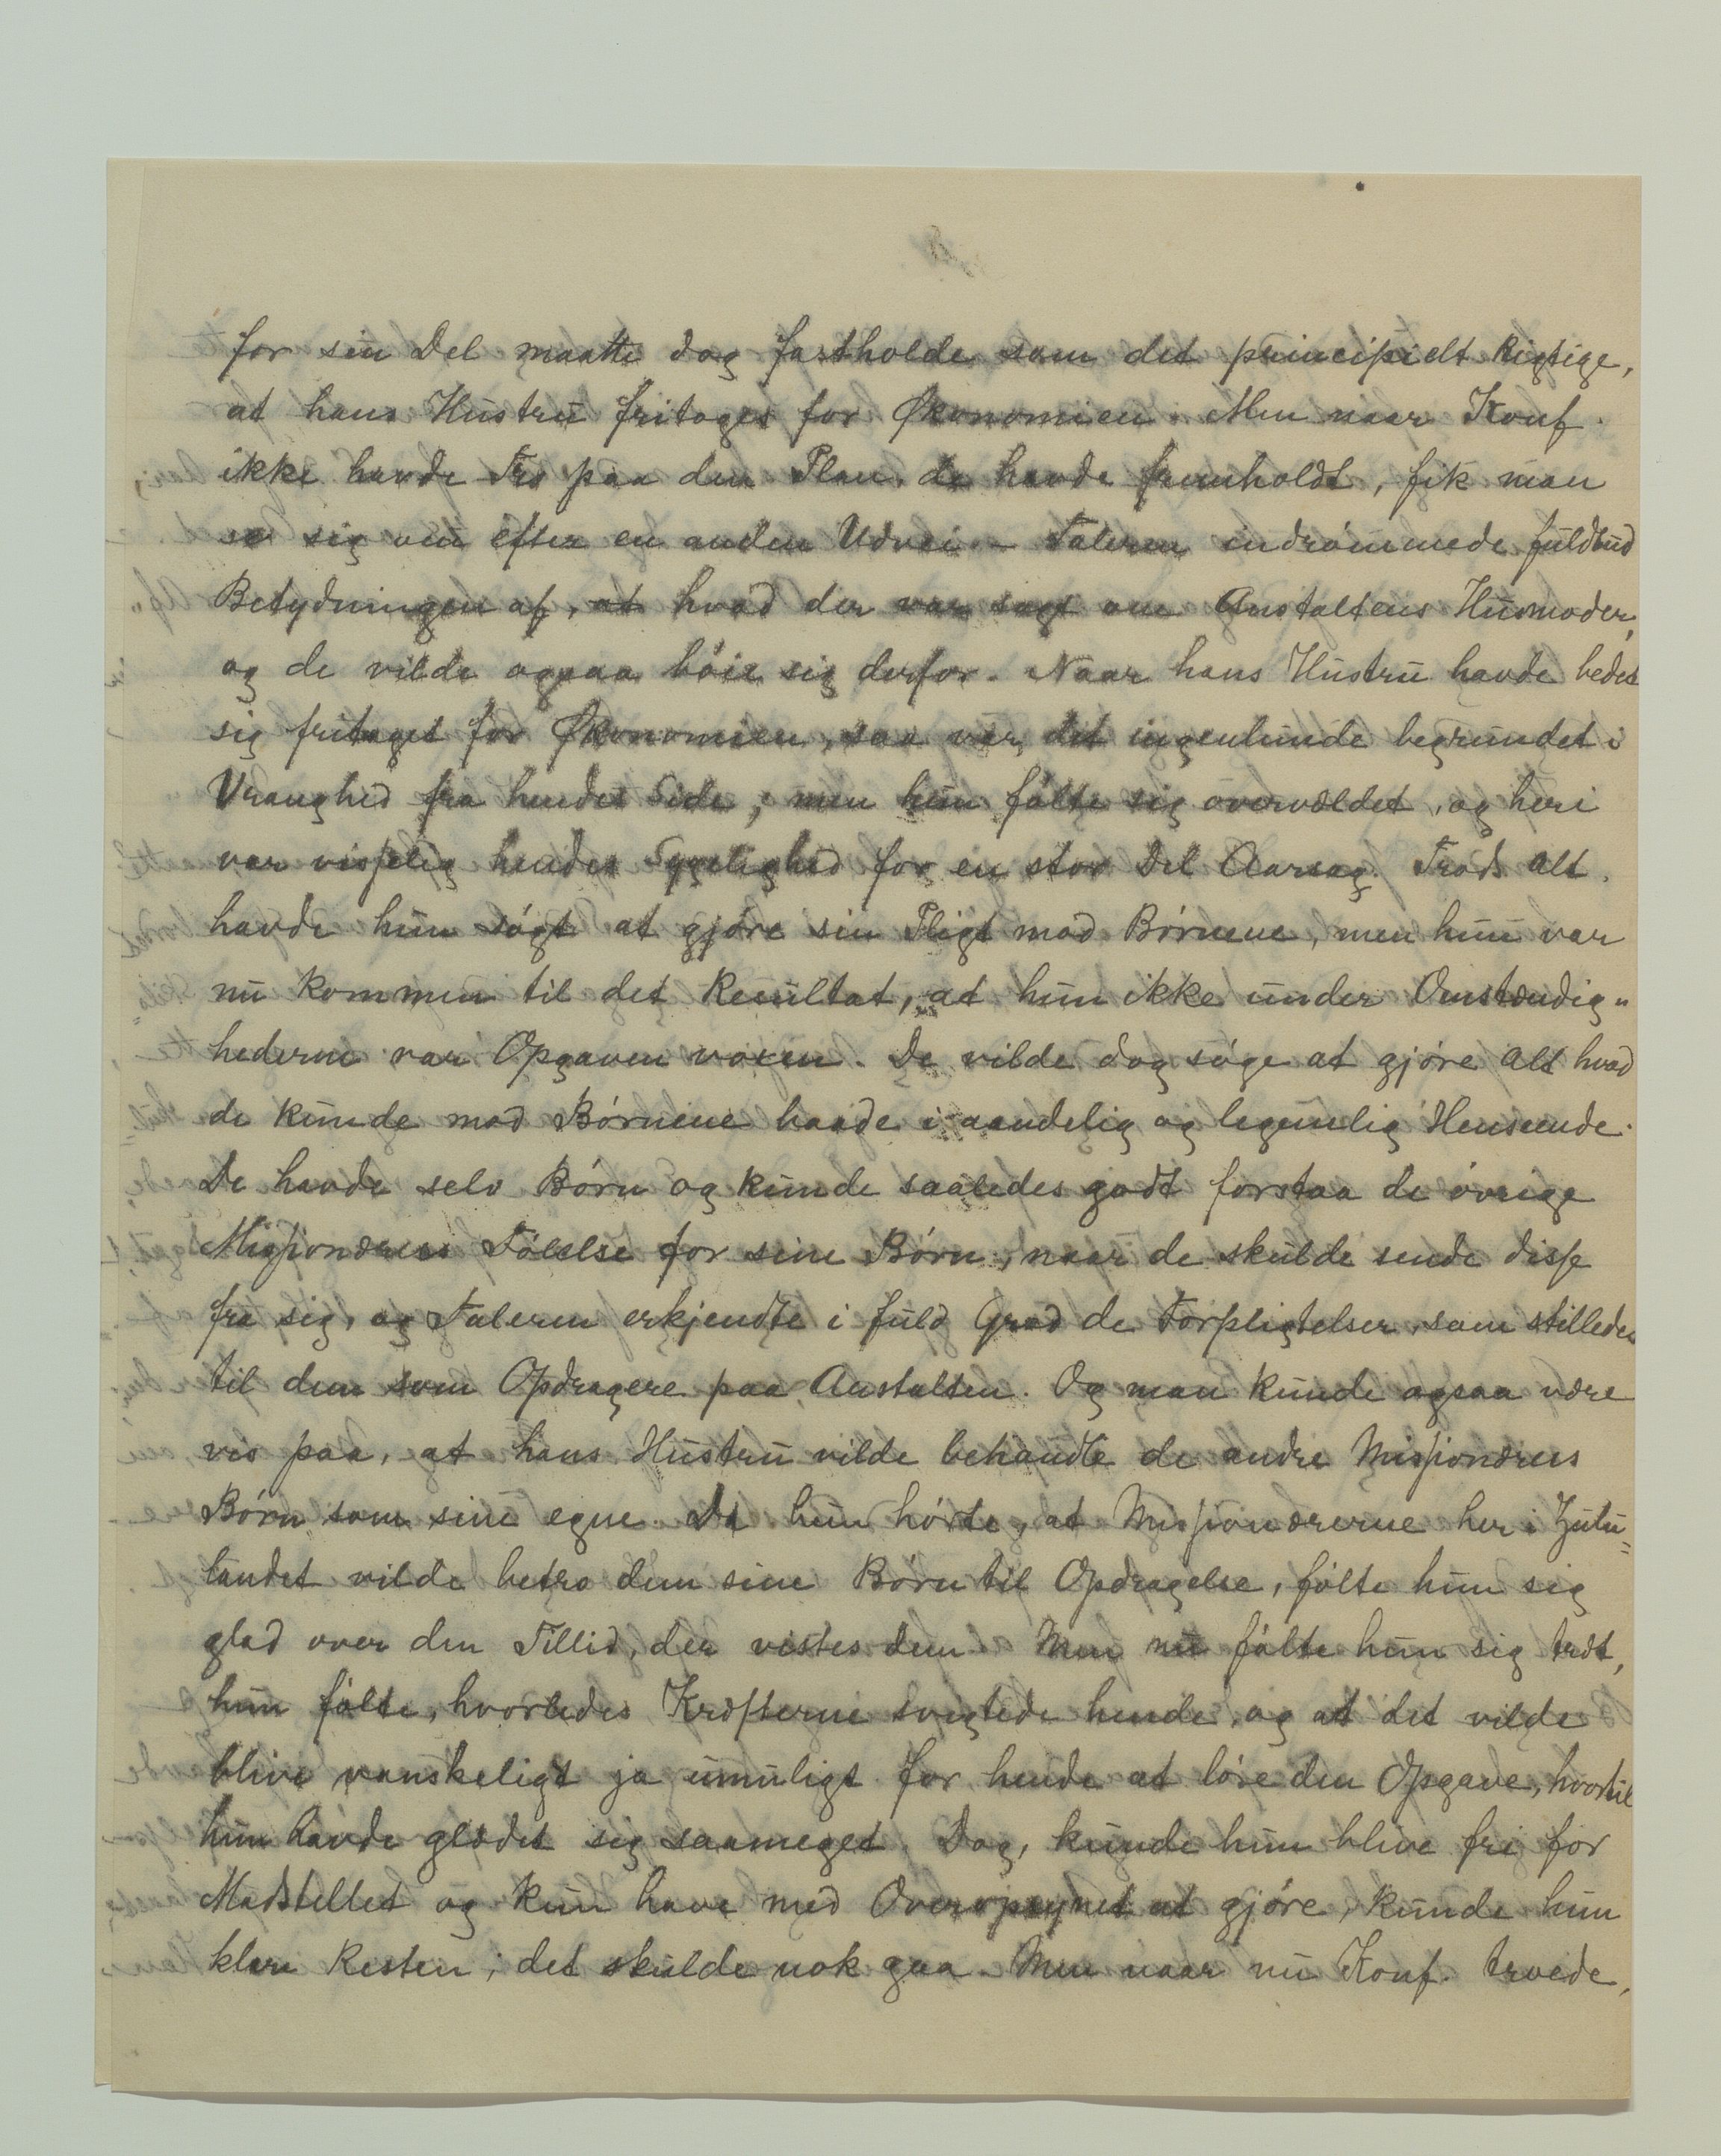 for sin Del maatte dog fastholde som det principielt Rigtige,
at hans Hustru fritoges for Økonomien. Men naar Konf.
ikke havde Tro paa den Plan, de havde fremholdt, fik man
se sig om efter en anden Udvei. – Taleren indrømmede fuldtud
Betydningen af, at hvad der var sagt om Anstaltens Husmoder,
og de vilde ogsaa bøie sig derfor. Naar hans Hustru havde bedet
sig fritaget for Økonomien, saa var det ingenlunde begrundet i
Vranghed fra hendes Side; men hun følte sig overvældet, og heri
var visselig hendes Sygelighed for en stor Del Aarsag. Trods alt
havde hun søgt at gjøre sin Pligt mod Børnene, men hun var
nu kommen til det Resultat, at hun ikke under Omstændig-
hederne var Opgaven voxen. De vilde dog søge at gjøre alt hvad
de kunde mod Børnene baade i aandelig og legemlig Henseende.
De havde selv Børn og kunde saaledes godt forstaa de øvrige
Missionærers Følelse for sine Børn, naar de skulde sende disse
fra sig, og Taleren erkjendte i fuld Grad de Forpligtelser, som stilledes
til dem som Opdragere paa Anstalten. Og man kunde ogsaa være
vis paa, at hans Hustru vilde behandle de andre Missionærers
Børn som sine egne. Da hun hørte, at Missionærerne her i Zulu-
landet vilde betro dem sine Børn til Opdragelse, følte hun sig
glad over den Tillid, der vistes dem. Men nu følte hun sig træt,
hun følte, hvorledes Kræfterne svigtede hende, og at det vilde
blive vanskeligt ja umuligt for hende at løse den Opgave, hvortil
hun havde glædet sig saameget. Dog, kunde hun blive fri for
Madstellet og kun have med Overopsynet at gjøre, kunde hun
klare Resten; det skulde nok gaa. Men naar nu Konf. troede,